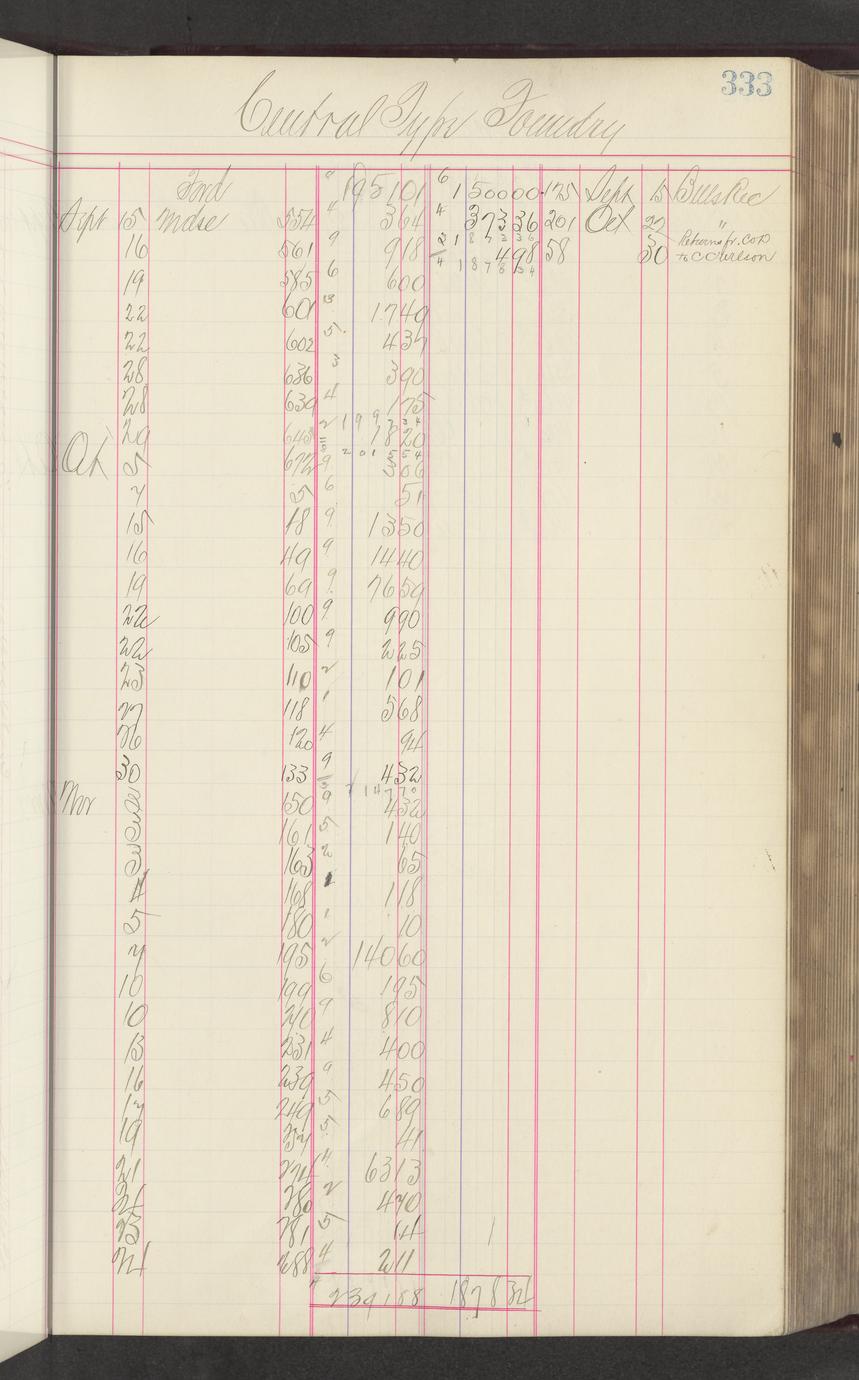 333
Central Type Foundry
Ford " 195101 6 150000 175 Sept 15 Bills Rec
Sept 15 Mdse 554 " 364 4 37336 201 Oct 27 "
16 561 9 918 2 187336 498 58 30 Returns fr. COD
to CCarlson
19 585 6 600 4 187834
22 601 13 1740
22 602 5 437
28 636 3 390
28 639 4 175
29 648 2 199734 1820
Oct 5 672 9 201554 306
7 5 6 51
15 18 9 1350
16 49 9 1440
19 69 9 7659
22 100 9 990
22 105 9 225
23 110 2 101
27 118 1 568
26 120 4 94
30 133 9 432
Nov 2 150 9 214770 432
3 161 5 140
3 163 2 65
4 168 1 118
5 180 1 10
7 195 2 14060
10 199 6 195
10 240 9 810
13 231 4 400
16 239 9 450
17 249 5 689
19 257 5 41
21 274 " 6313
21 280 2 470
23 281 5 14
24 288 4 211
" 239188 187834